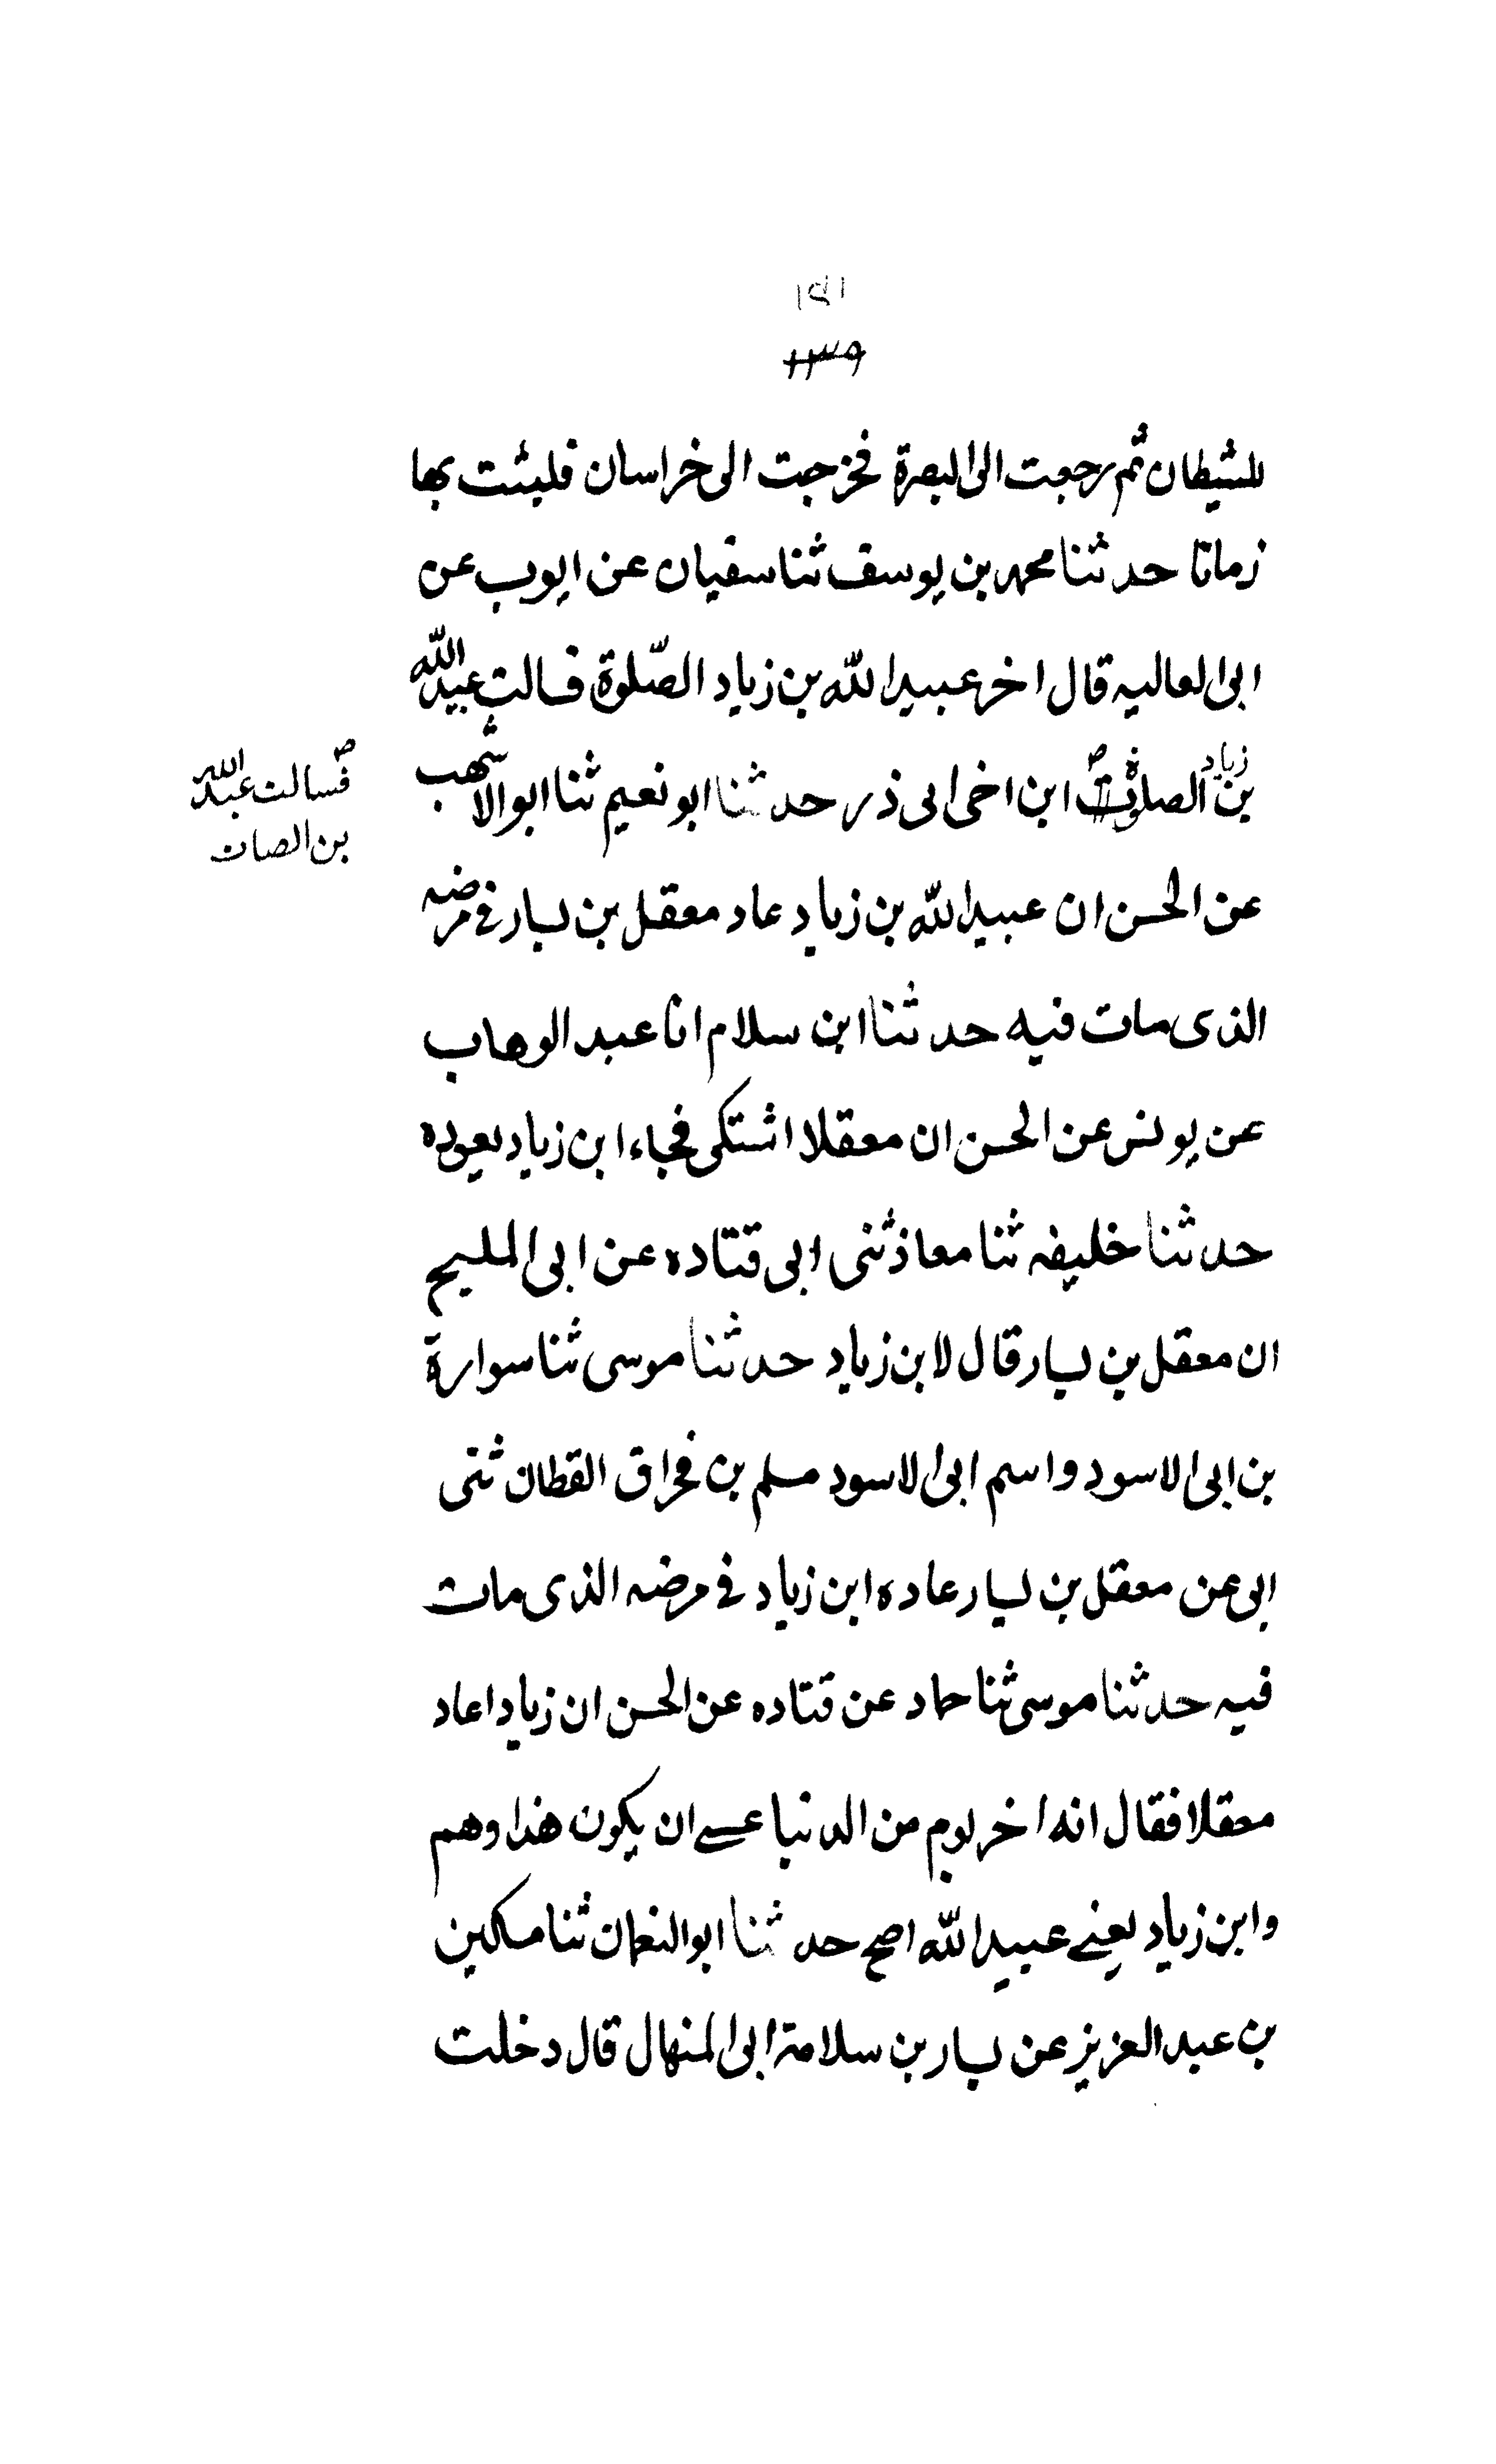 ١٤١
١١٣٩
للشيطان ثم رجعت الى البصرة فخرجت الى خراسان فلبثت بها
زمانا حدثنا محمد بن يوسف ثنا سفيان عن ايوب عن
ابى العاليه قال اخر عبيد الله بن زياد الصّلوة فسالت عبيد الله
بن زياد الصلوة ابن اخى ابى ذر حدثنا ابو نعيم ثنا ابو الاشهب
فسالت عبد الله
بن الصات
عن الحسن ان عبيد الله بن زياد عاد معقل بن يسار في مرضه
الذى مات فيه حدثنا ابن سلام انا عبد الوهاب
عن يونس عن الحسن ان معقلا اشتكى فجاء ابن زياد يعوده
حدثنا خليفه ثنا معاذ ثنى ابى قتاده عن ابى المليح
ان معقل بن يسار قال لابن زياد حدثنا موسى ثنا سوارة
بن ابى الاسود واسم ابى الاسود مسلم بن مخراق القطان ثنى
ابى عن معقل بن يسار عاده ابن زياد في مرضه الذى مات
فيه حدثنا موسى ثنا حماد عن قتاده عن الحسن ان زيادا عاد
معقلا فقال انه اخر يوم من الدنيا عسے ان يكون هذا وهم
وابن زياد يعنے عبيد الله اصح حدثنا ابو النعمان ثنا مسكين
بن عبد العزيز عن يسار بن سلامة ابى المنهال قال دخلت